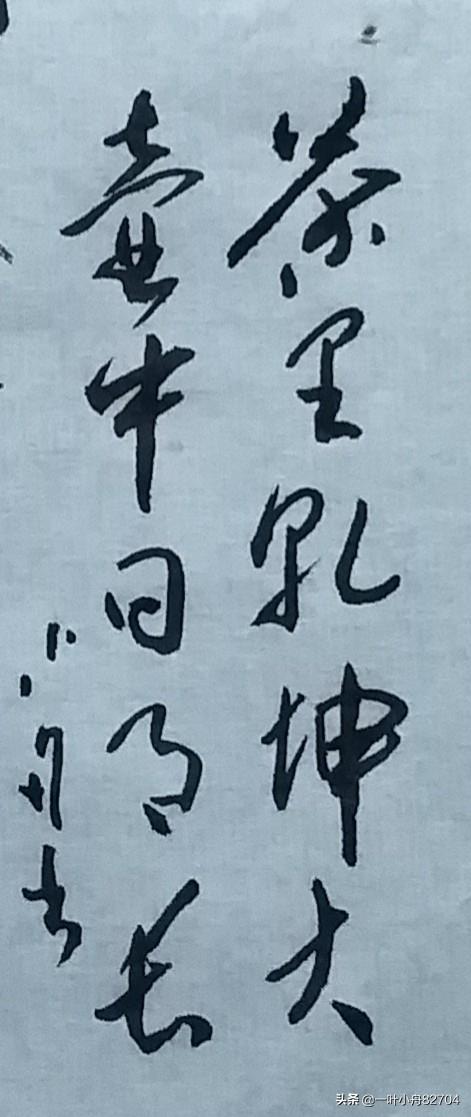 茶里乾坤大
壶中日月长
小舟书
头条 @一叶小舟82704